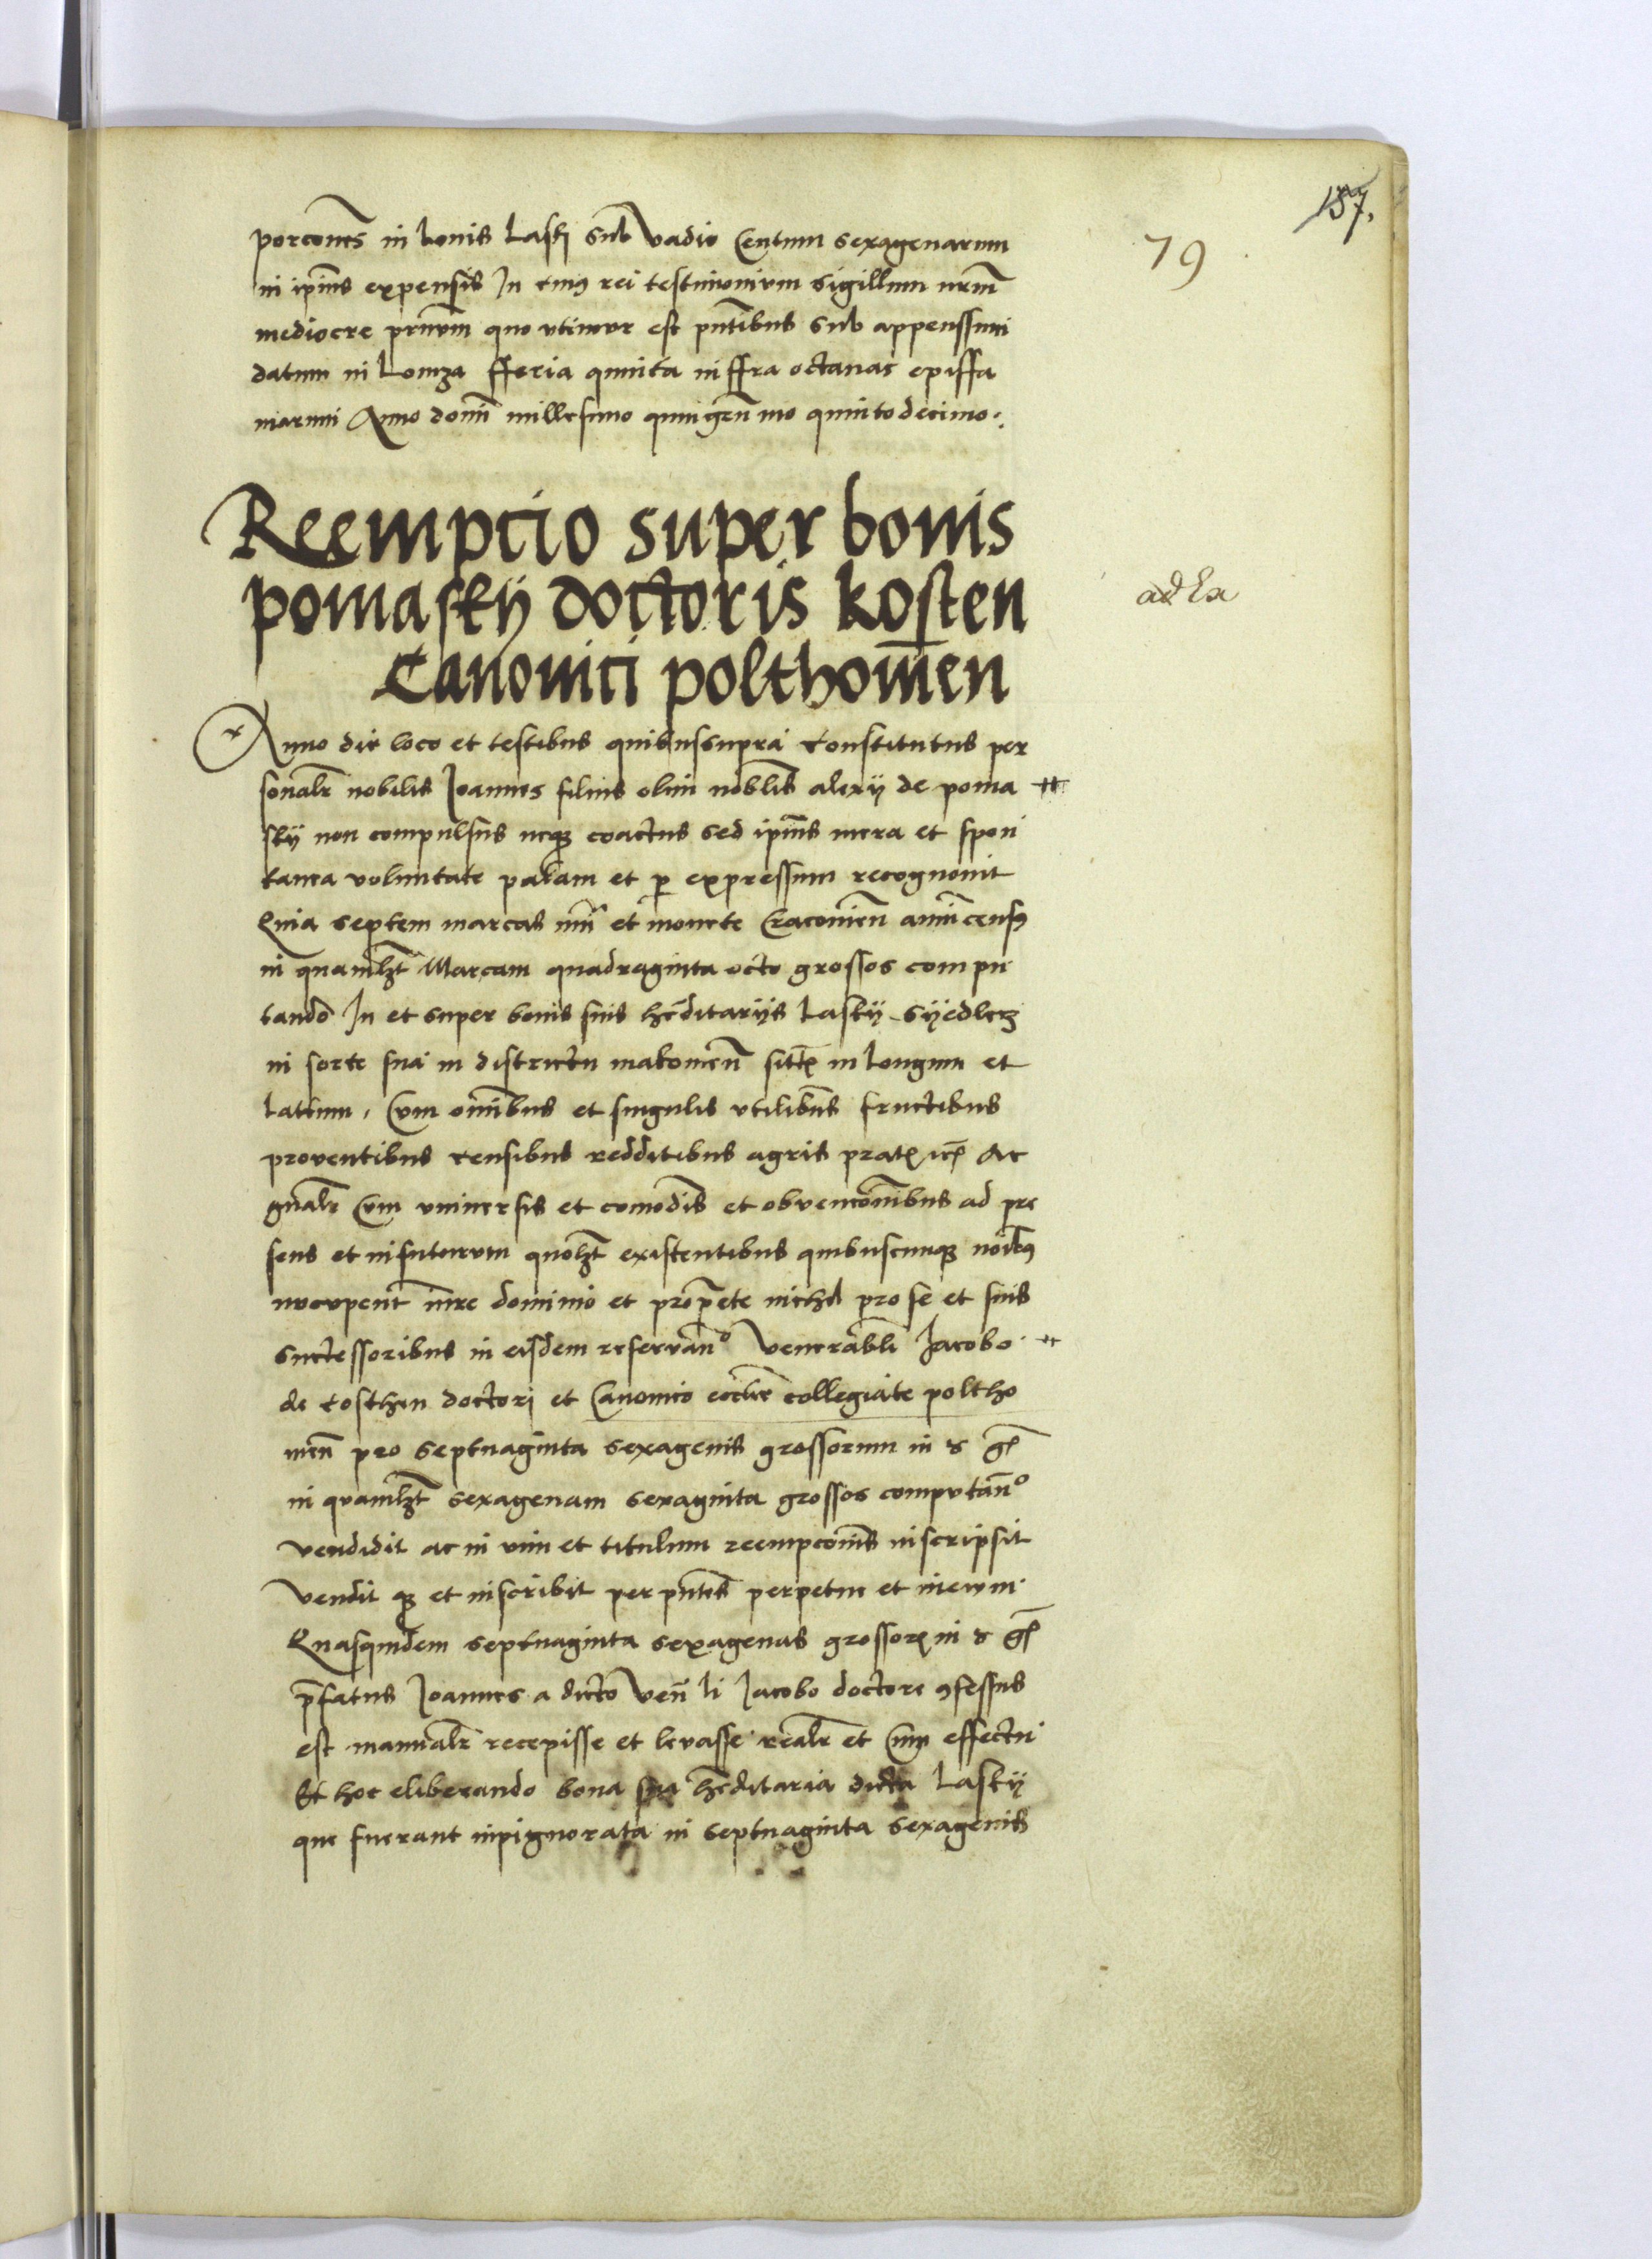 187.
79
porcones in bonis Lasky sub vadio Centum sexagenarum
in ipius expensis In cuius rei testimonium sigillum nrm
mediocre prnvm quo vtimvr est pntibus sub appenssum
datum in Lomza fferia quinta inffra octauas epiffa
niarum Anno domi millesimo quingen mo quinto decimo.
Reempcio super bonis
pomaskÿ doctoris kosten
Canonici polthouien
ad La
Anno die loco et testibus quibussupra Constitutus per
sonalr nobilis Joannes filius olim noblis alexÿ de poma
skÿ non compulsus neque coactus sed ipius mera et spon
tanea voluntate palam et per expressum recognouit
Quia septem marcas et monete Cracouien annui census
in quamlzt Marcam quadraginta octo grossos compu
tando In et super bonis suis hereditarÿs Laskÿ Sÿedlecz
in sorte sua in districtu makouien sitis in longum et
Latum, Cum omnibus et singulis vtilibus fructibus
prouentibus censibus redditibus agris pratis Ac
gnalr Cum vniuersis et comodis et obvenconibus ad pre
sens et infuturum quolzt existentibus quibuscunque noibus
nucupent iure dominio et proprete nichil pro se et suis
successoribus in eisdem reseruano Venerabli Jacobo
de Costhen doctori et Canonico ecclie collegiate poltho
uien pro septuaginta sexagenis grossorum in
in quamlzt sexagenam sexaginta grossos computano
vendidit ac in vim et titulum reempconis inscripsit
Vendit que et inscribit per pntes perpetue et ineuum
Quasquidem septuaginta sexagenas grossor in
prefatus Joannes a dicto Ven li Jacobo doctore confessus
est manualr recepisse et leuasse realr et Cum effectu
Et hoc eliberando bona sua hereditaria dicta Laskÿ
que fuerant inpignorata in septuaginta sexagenis